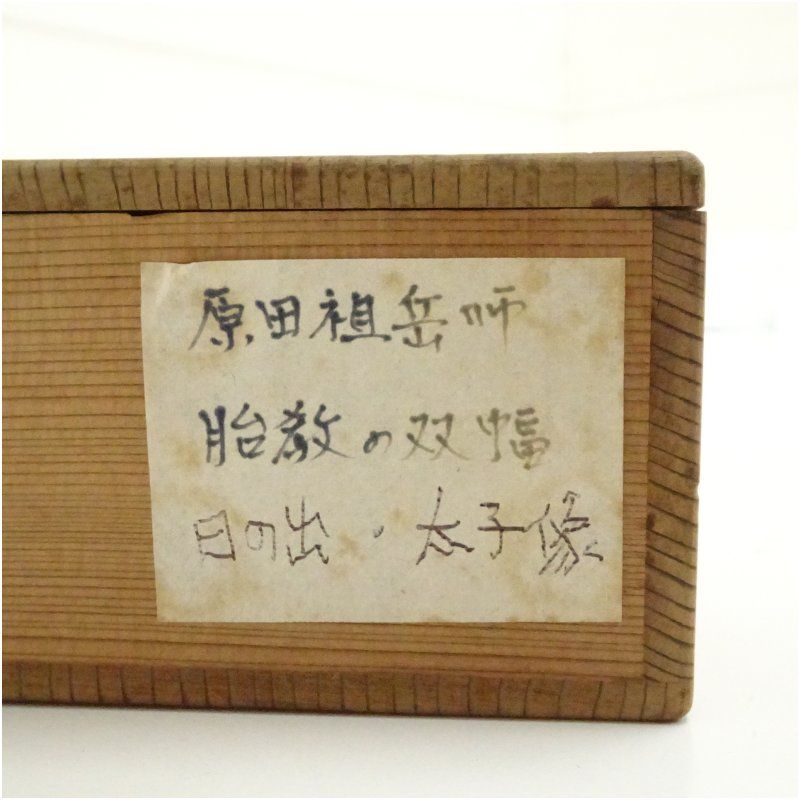 原田祖岳師
胎教の双幅
日の出・太子像